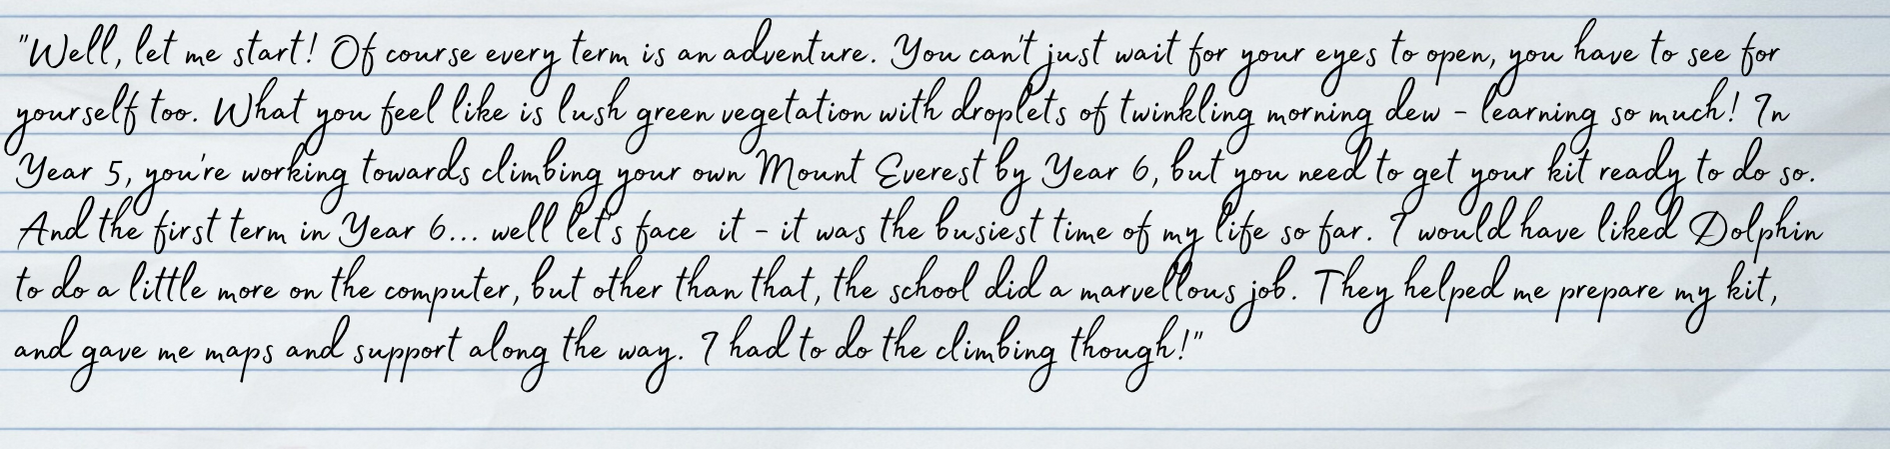 "Well, let me start! Of course every term is an adventure. You can't just wait for your eyes to open, you have to see for
yourself too. What you feel like is lush green vegetation with droplets of twinkling morning dew - learning so much! In
Year 5, you're working towards climbing your own Mount Everest by Year 6, but you need to get your kit ready to do so.
And the first term in Year 6... well let's face it - it was the busiest time of my life so far. I would have liked Dolphin
to do a little more on the computer, but other than that, the school did a marvellous job. They helped me prepare my kit,
and gave me maps and support along the way. I had to do the climbing though!"